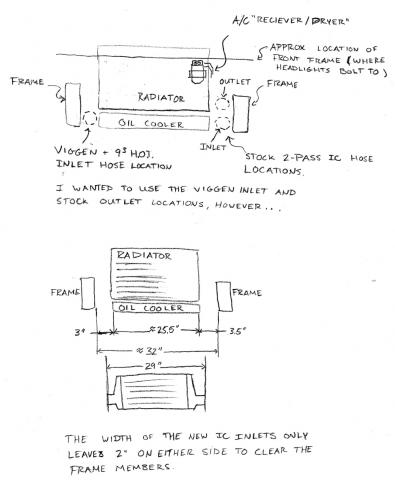 A/C "RECIEVER/DRYER"
APPROX LOCATION OF
FRONT FRAME (WHERE
HEADLIGHTS BOLT TO)
FRAME
OUTLET
FRAME
RADIATOR
OIL COOLER
INLET
VIGGEN + 93 H.O.T.
INLET HOSE LOCATION
STOCK 2-PASS IC HOSE
LOCATIONS.
I WANTED TO USE THE VIGGEN INLET AND
STOCK OUTLET LOCATIONS, HOWEVER...
RADIATOR
FRAME
FRAME
OIL COOLER
3"
≈25.5"
3.5"
≈32"
29"
THE WIDTH OF THE NEW IC INLETS ONLY
LEAVES 2" ON EITHER SIDE TO CLEAR THE
FRAME MEMBERS.